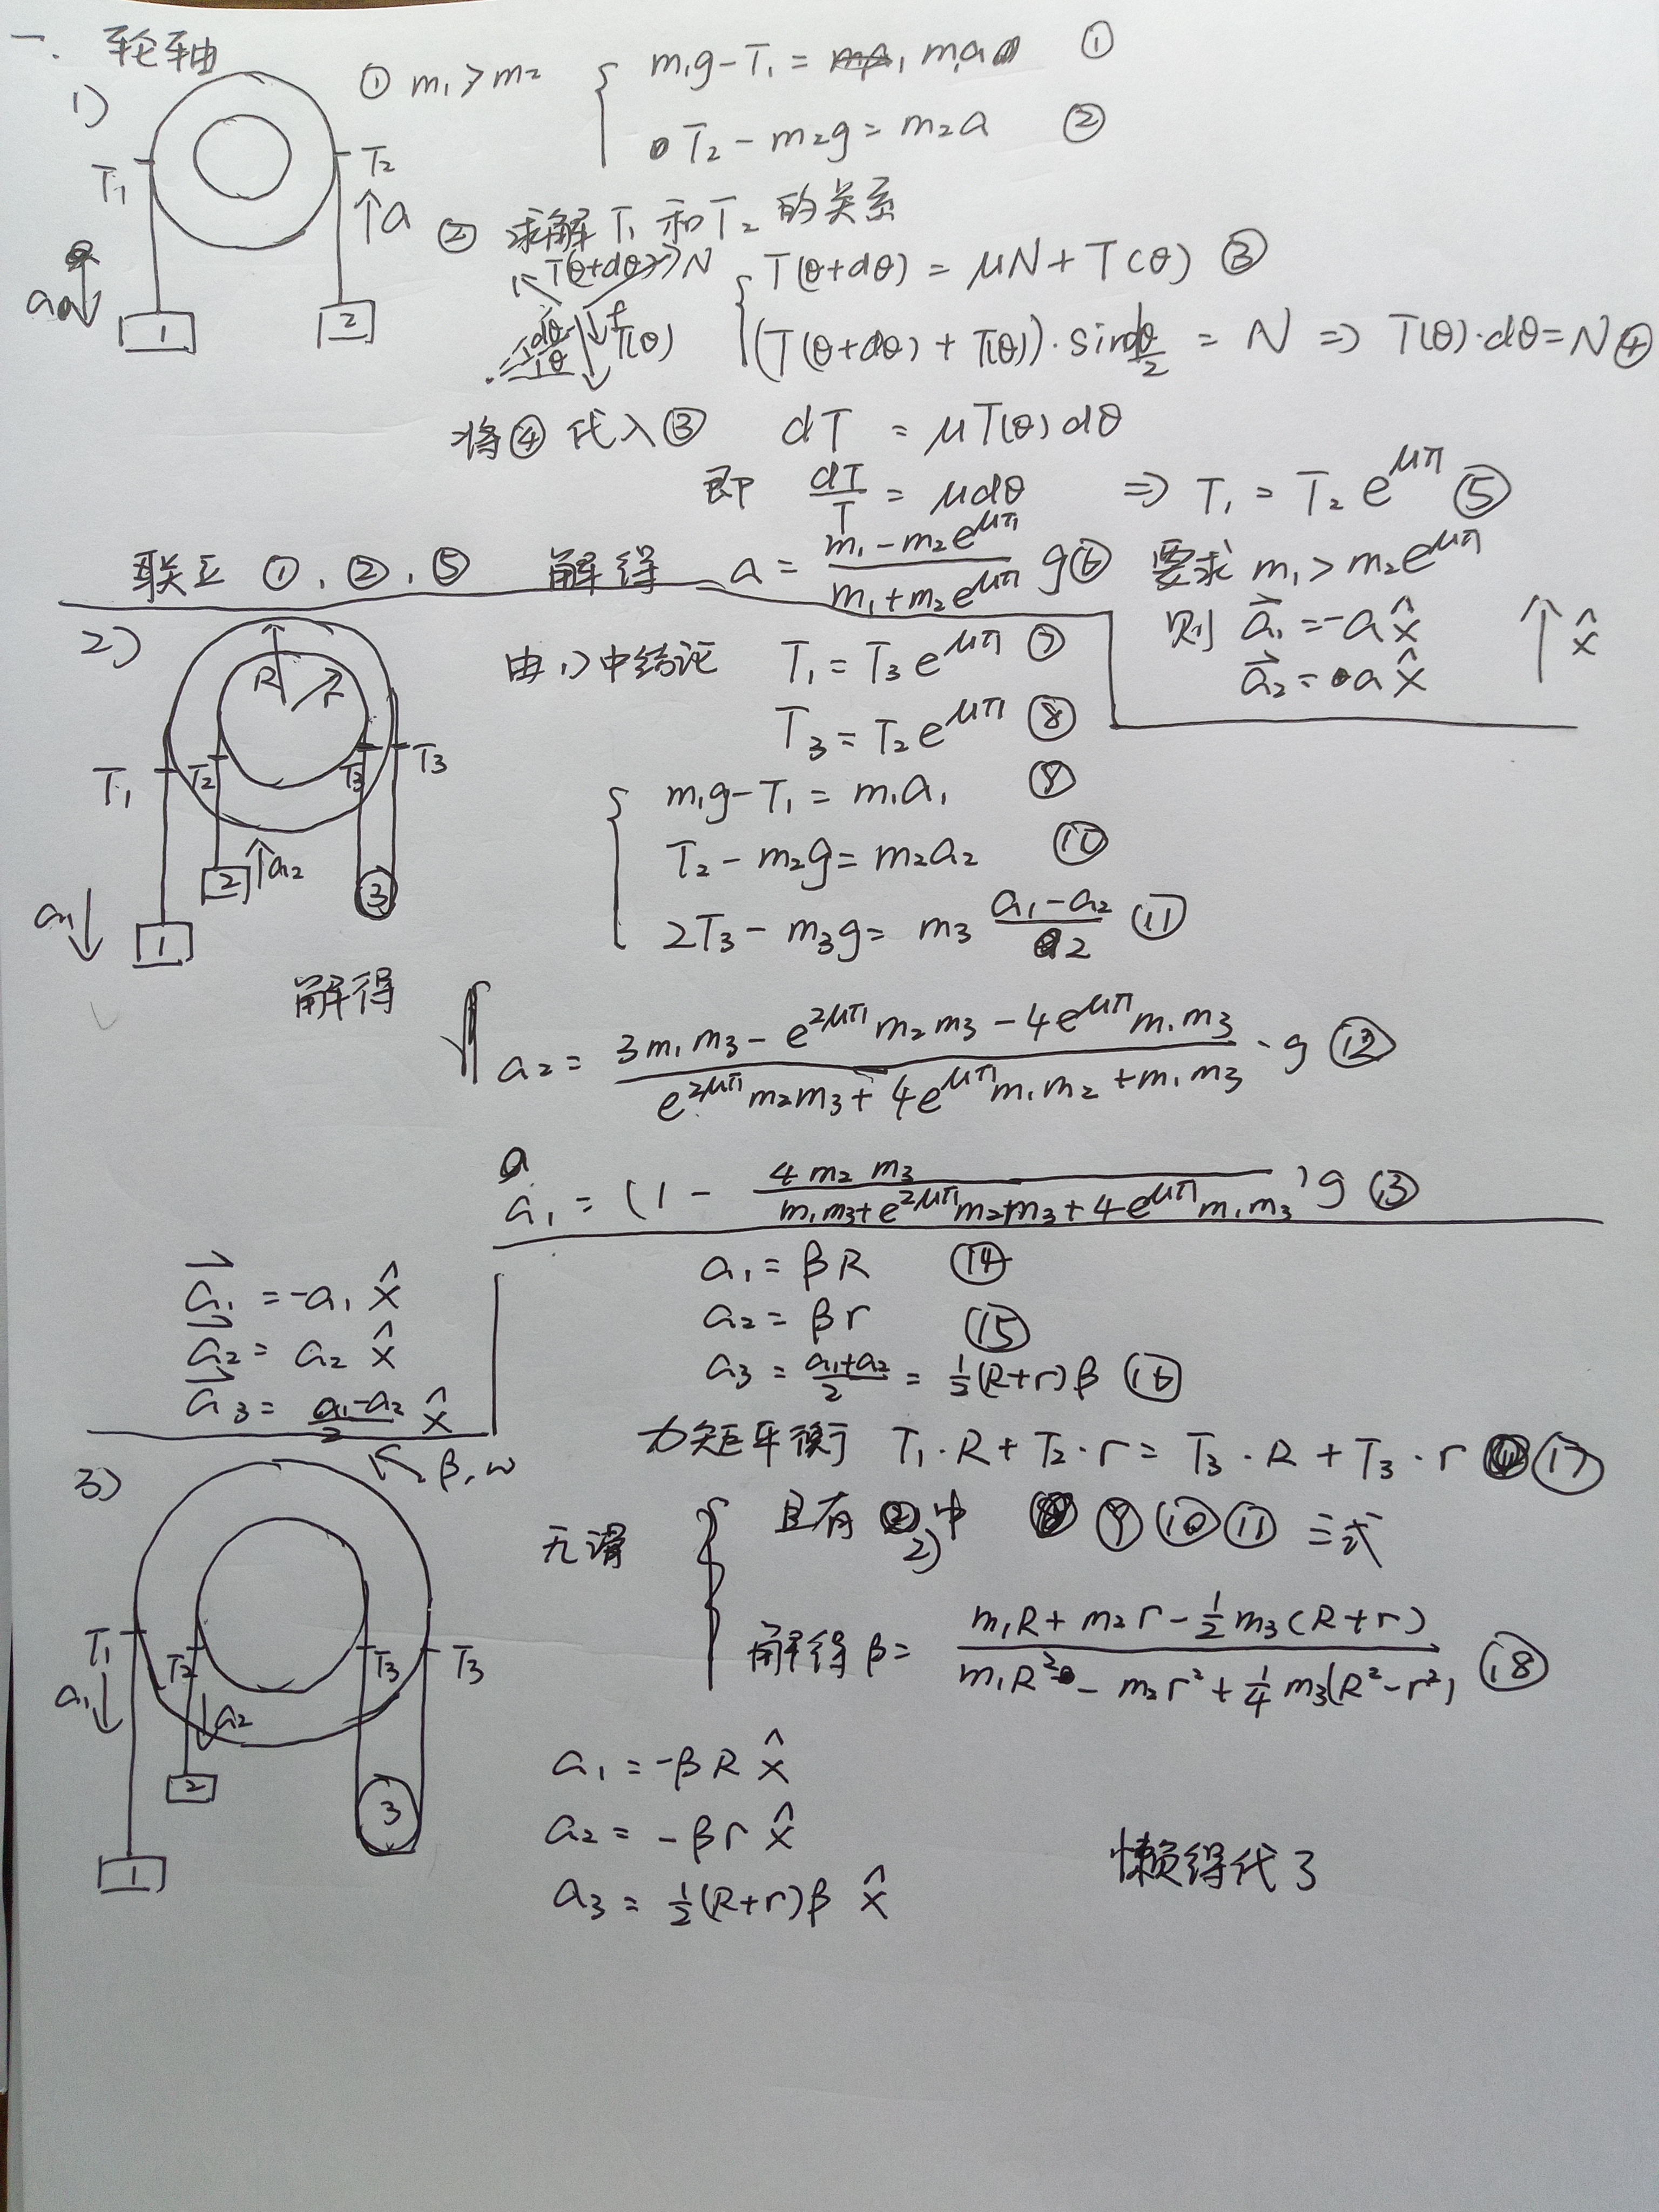 一. 轮轴
1)
① m₁>m₂ { m₁g-T₁ = m₁a ①
T₂-m₂g = m₂a ②
T₁ T₂ a a 1 2
② 求解T₁和T₂的关系
T(θ+dθ) N f T(θ) dθ
{ T(θ+dθ) = μN+T(θ) ③
(T(θ+dθ)+T(θ))·sin dθ/2 = N ⇒ T(θ)·dθ=N ④
将④代入③ dT = μT(θ)dθ
即 dT/T = μdθ ⇒ T₁ = T₂e^{μπ} ⑤
联立 ①、②、⑤ 解得 a = (m₁-m₂e^{μπ})/(m₁+m₂e^{μπ}) g ⑥ 要求 m₁>m₂e^{μπ}
则 a⃗₁=-a x̂ ↑ x̂
a⃗₂= a x̂
2)
R r T₁ T₂ T₃ T₃ a₁ a₂ 1 2 3
由1)中结论 T₁ = T₃e^{μπ} ⑦
T₃ = T₂e^{μπ} ⑧
{ m₁g-T₁ = m₁a₁ ⑨
T₂-m₂g = m₂a₂ ⑩
2T₃-m₃g = m₃ (a₁-a₂)/2 ⑪
解得 { a₂ = (3m₁m₃-e^{2μπ}m₂m₃-4e^{μπ}m₁m₃)/(e^{2μπ}m₂m₃+4e^{μπ}m₁m₂+m₁m₃)·g ⑫
a₁ = (1 - 4m₂m₃/(m₁m₃+e^{2μπ}m₂m₃+4e^{μπ}m₁m₃))g ⑬
a⃗₁ = -a₁ x̂
a⃗₂ = a₂ x̂
a⃗₃ = (a₁-a₂)/2 x̂
3)
β,ω T₁ T₂ T₃ T₃ a₁ a₂ 1 2 3
a₁ = βR ⑭
a₂ = βr ⑮
a₃ = (a₁+a₂)/2 = ½(R+r)β ⑯
力矩平衡 T₁·R+T₂·r = T₃·R+T₃·r ⑰
无滑 { 且有2)中 ⑨⑩⑪三式
解得β = (m₁R+m₂r-½m₃(R+r))/(m₁R²-m₂r²+¼m₃(R²-r²)) ⑱
a₁ = -βR x̂
a₂ = -βr x̂
a₃ = ½(R+r)β x̂
懒得代了